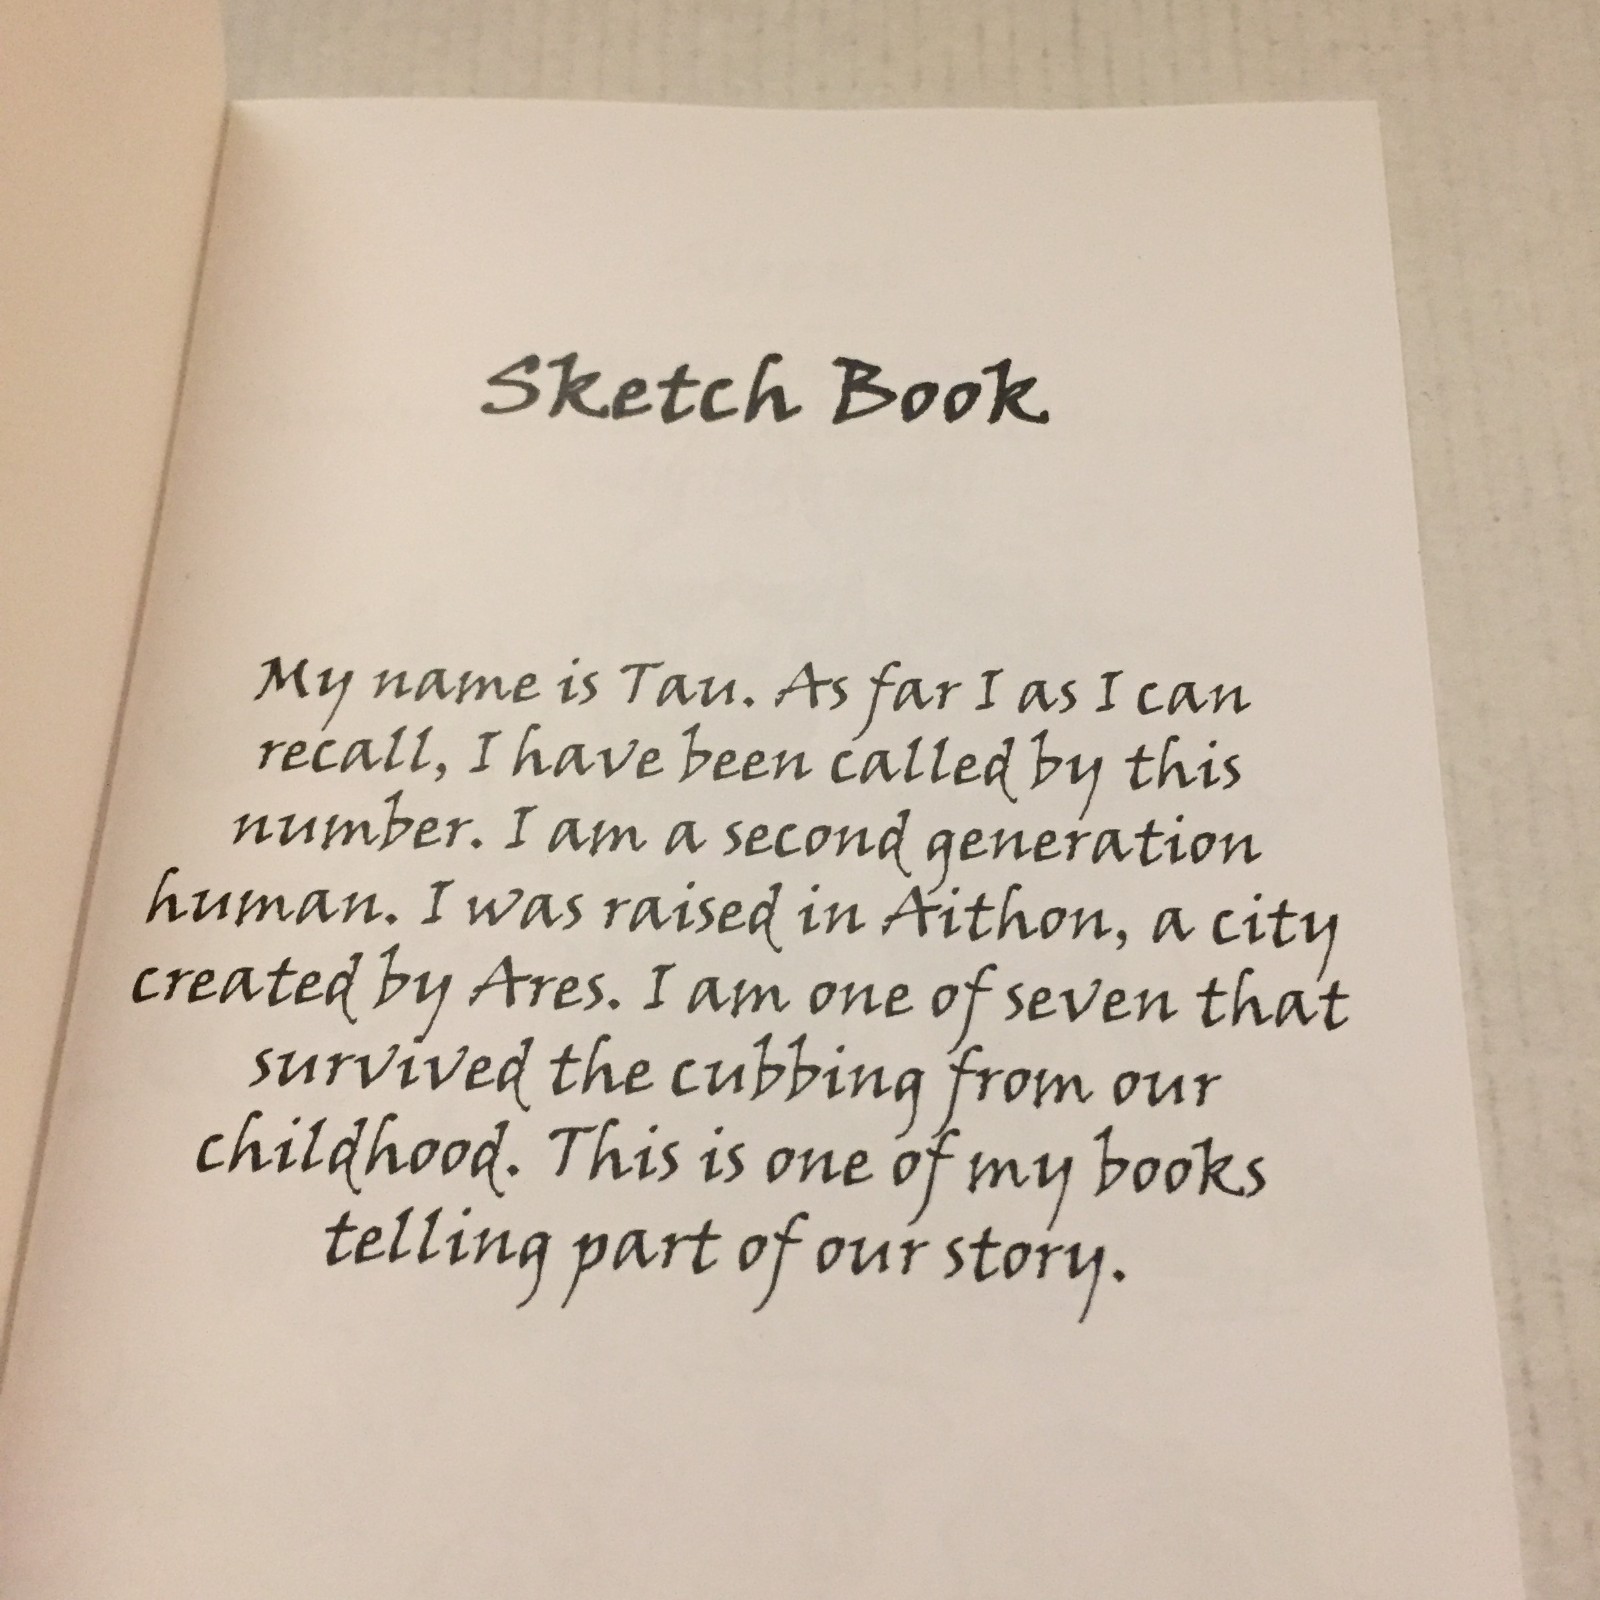 Sketch Book
My name is Tau. As far I as I can
recall, I have been called by this
number. I am a second generation
human. I was raised in Aithon, a city
created by Ares. I am one of seven that
survived the cubbing from our
childhood. This is one of my books
telling part of our story.